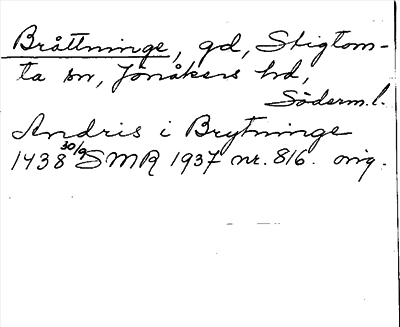 Bråttninge, gd, Stigtom-
ta sn, Jönåkers hd,
Söderm.l.
Andris i Brytninge
1438 30/9 SMR 1937 nr. 816. orig.